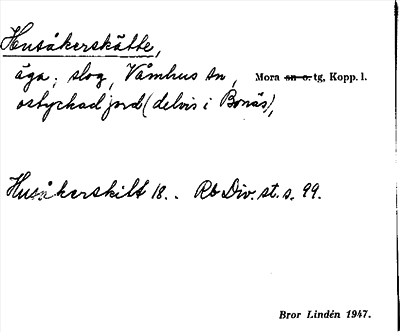 Husåkerskätte,
äga; slog, Våmhus sn, Mora sn o. tg, Kopp. l.
ostyckad jord (delvis i Bonäs),
Husåkerskilt 18.. Rb Div. st. s. 99.
Bror Lindén 1947.